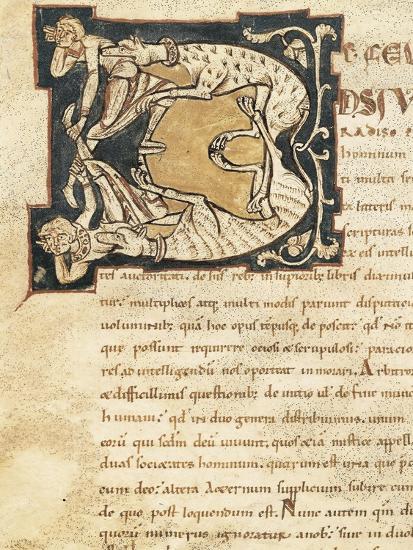 E FEL
DSI V
RADISO
hominum
ti multa sen
a litteris m
scripturas s
eis intelle
tes auctoritati. de his reb; in supiorib; libris diximus
tur. multiplices atq; multi modas pariunt disputatio
voluminib; quā hoc opus tēpusq; deposcit. qd NON
que possunt requirere ociosi & scrupulosi. paracio
res ad intelligendū nos oporteat inmorari. Arbitror
& difficillimis questionib; de initio vl de
humani. qd in duo genera distribuimus. unum
eorū qui scdm deū vivunt, quos &iā mistice appell
duas societates hominum. quarum est una que p
cum deo. altera &ternum supplicium subire cum
de quo post loquendum est. Nunc autem qm d
quorū numerus ignoratur anob. sive in duo